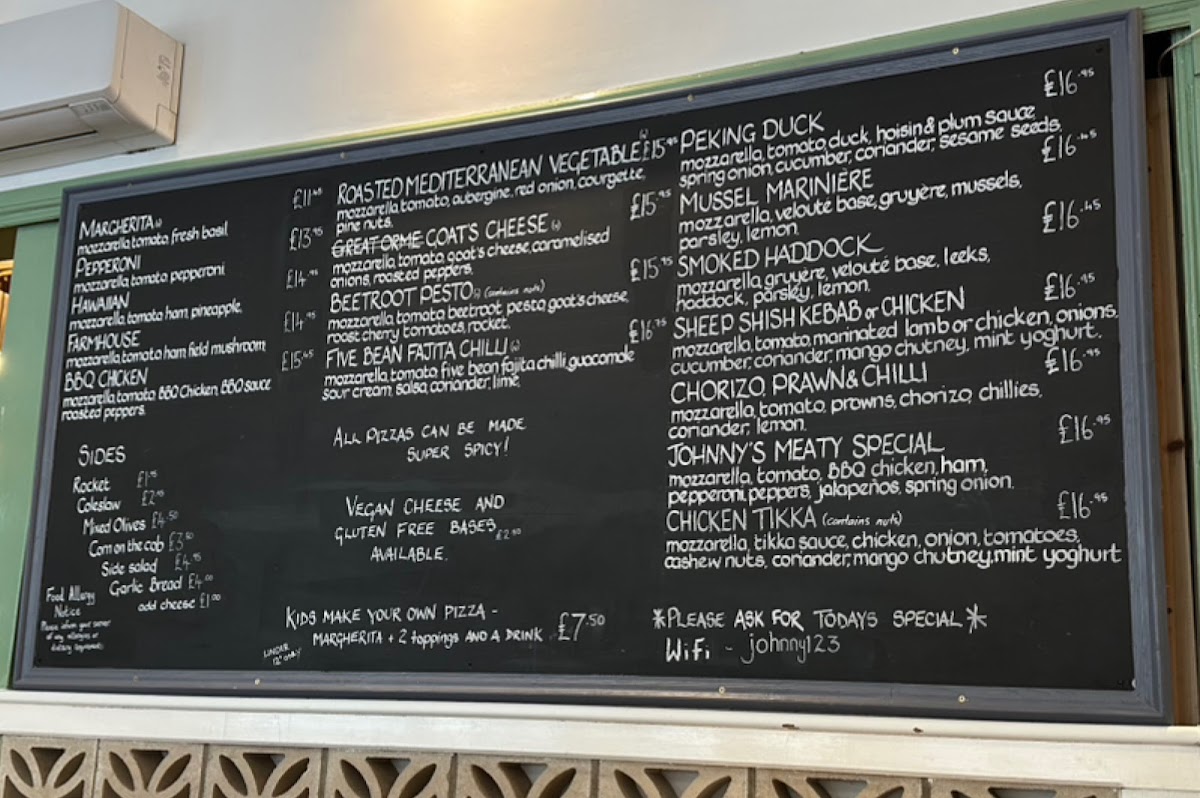 MARGHERITA (v) £11.45
mozzarella, tomato, fresh basil
PEPPERONI £13.95
mozzarella, tomato, pepperoni
HAWAIIAN £14.95
mozzarella, tomato, ham, pineapple,
FARMHOUSE £14.95
mozzarella, tomato, ham, field mushroom,
BBQ CHICKEN £15.45
mozzarella, tomato, BBQ Chicken, BBQ sauce
roasted peppers.
SIDES
Rocket
Coleslaw
Mixed Olives £4.50
Corn on the cob £3.50
Side salad £4.95
Garlic Bread £4.00
add cheese £1.00
Food Allergy
Notice
Please inform your server
of any allergies or
dietary requirements
ROASTED MEDITERRANEAN VEGETABLE (v) £15.95
mozzarella, tomato, aubergine, red onion, courgette,
pine nuts.
GREAT ORME GOAT'S CHEESE (v) £15.95
mozzarella, tomato, goat's cheese, caramelised
onions, roasted peppers,
BEETROOT PESTO (v) (contains nuts) £15.95
mozzarella, tomato, beetroot pesto, goat's cheese,
roast cherry tomatoes, rocket.
FIVE BEAN FAJITA CHILLI (v)
mozzarella, tomato, five bean fajita chilli, guacamole
sour cream, salsa, coriander, lime.
ALL PIZZAS CAN BE MADE
SUPER SPICY!
VEGAN CHEESE AND
GLUTEN FREE BASES £2.50
AVAILABLE.
KIDS MAKE YOUR OWN PIZZA -
MARGHERITA + 2 toppings AND A DRINK £7.50
UNDER
12's only
PEKING DUCK £16.95
mozzarella, tomato, duck, hoisin & plum sauce,
spring onion, cucumber, coriander, sesame seeds,
MUSSEL MARINIÈRE £16.45
mozzarella, velouté base, gruyère, mussels,
parsley, lemon.
SMOKED HADDOCK £16.45
mozzarella, gruyère, velouté base, leeks,
haddock, parsley, lemon.
SHEEP SHISH KEBAB or CHICKEN £16.95
mozzarella, tomato, marinated lamb or chicken, onions,
cucumber, coriander, mango chutney, mint yoghurt.
CHORIZO, PRAWN & CHILLI £16.95
mozzarella, tomato, prawns, chorizo, chillies,
coriander, lemon.
JOHNNY'S MEATY SPECIAL £16.95
mozzarella, tomato, BBQ chicken, ham,
pepperoni, peppers, jalapeños, spring onion.
CHICKEN TIKKA (contains nuts) £16.95
mozzarella, tikka sauce, chicken, onion, tomatoes,
cashew nuts, coriander, mango chutney, mint yoghurt
*PLEASE ASK FOR TODAYS SPECIAL*
WiFi - johnny123